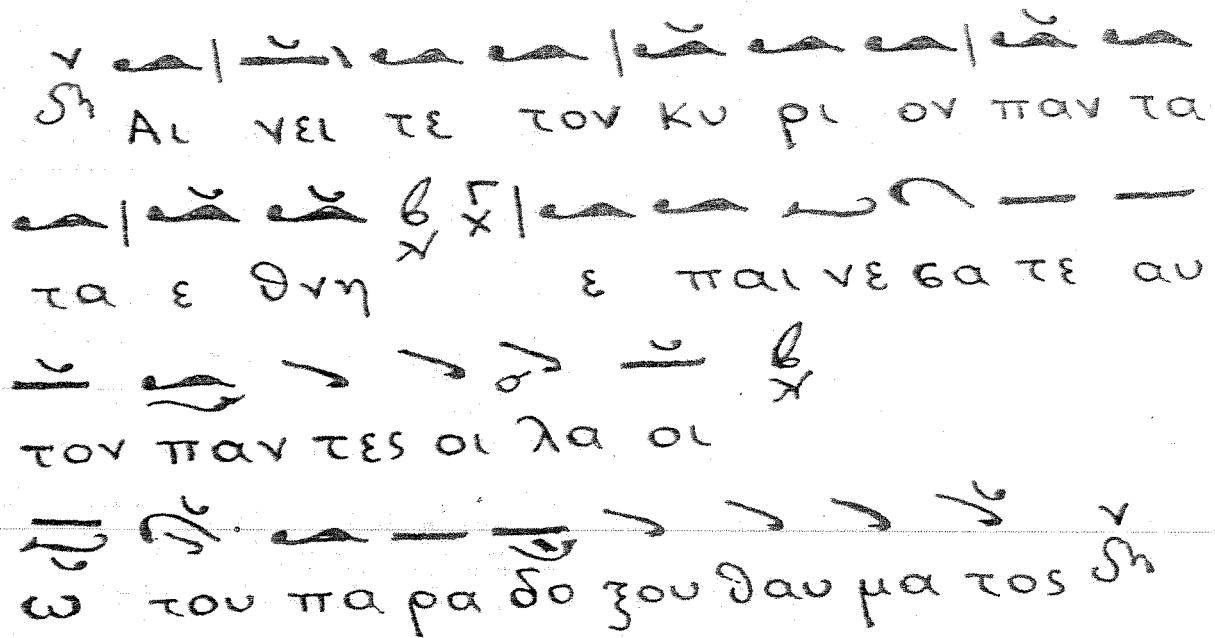 Αι νει τε τον κυ ρι ον παν τα
τα ε θνη ε παι νε σα τε αυ
τον παν τες οι λα οι
ω του πα ρα δο ξου θαυ μα τος